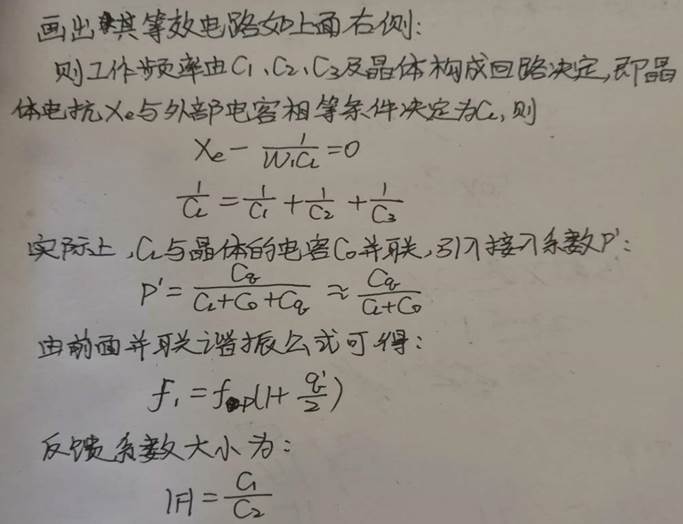 画出其等效电路如上面右侧:
则工作频率由C₁、C₂、C₃及晶体构成回路决定,即晶
体电抗Xe与外部电容相等条件决定为C_L,则
Xe - 1/(W₁C_L) = 0
1/C_L = 1/C₁ + 1/C₂ + 1/C₃
实际上,C_L与晶体的电容C₀并联,引入接入系数P':
P' = Cq/(C_L+C₀+Cq) ≈ Cq/(C_L+C₀)
由前面并联谐振公式可得:
f₁ = f(1+q'/2)
反馈系数大小为:
|F| = C₁/C₂